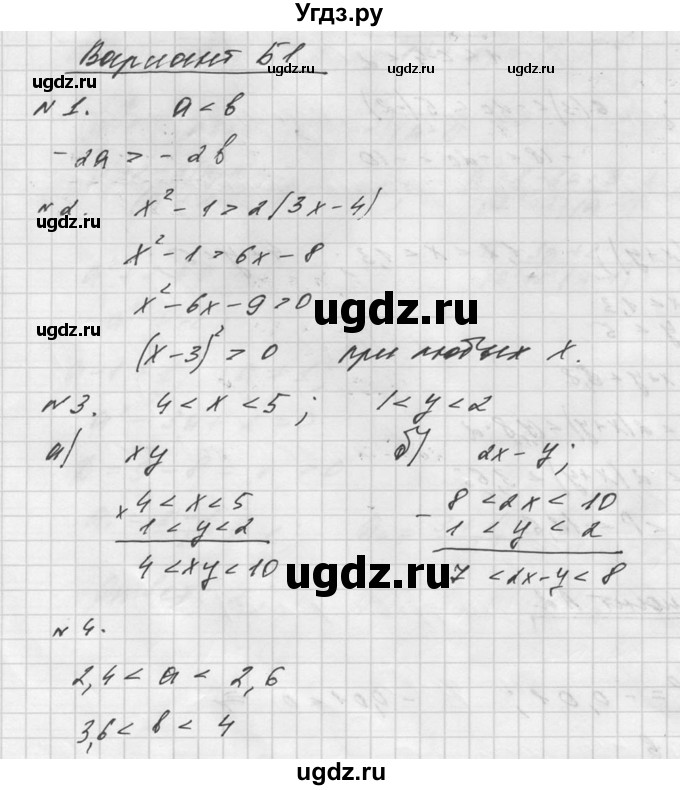 Угдз.ру
Вариант Б1
ugdz.ru ugdz.ru ugdz.ru
№1. a < в
-2a > -2в
№2. x² - 1 > 2(3x - 4)
ugdz.ru
x² - 1 > 6x - 8
x² - 6x - 9 > 0
ugdz.ru
ugdz.ru
(x - 3)² > 0 при любых x.
№3. 4 < x < 5; 1 < y < 2
а) xy б) 2x - y;
× 4 < x < 5 - 8 < 2x < 10
1 < y < 2 1 < y < 2
4 < xy < 10 7 < 2x-y < 8
ugdz.ru
№4.
2,4 < a < 2,6
3,6 < в < 4
ugdz.ru